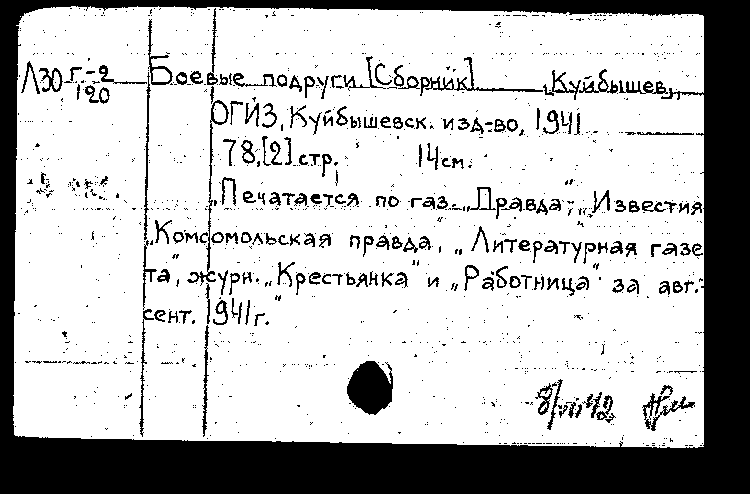 Л30 Г-2/120 Боевые подруги. [Сборник] „Куйбышев„,
ОГИЗ, Куйбышевск. изд-во, 1941
78,[2] стр. 14 см.
„Печатается по газ. „Правда“, „Известия
„Комсомольская правда“, „Литературная газе
та“, журн. „Крестьянка“ и „Работница“ за авг.-
сент. 1941 г.“